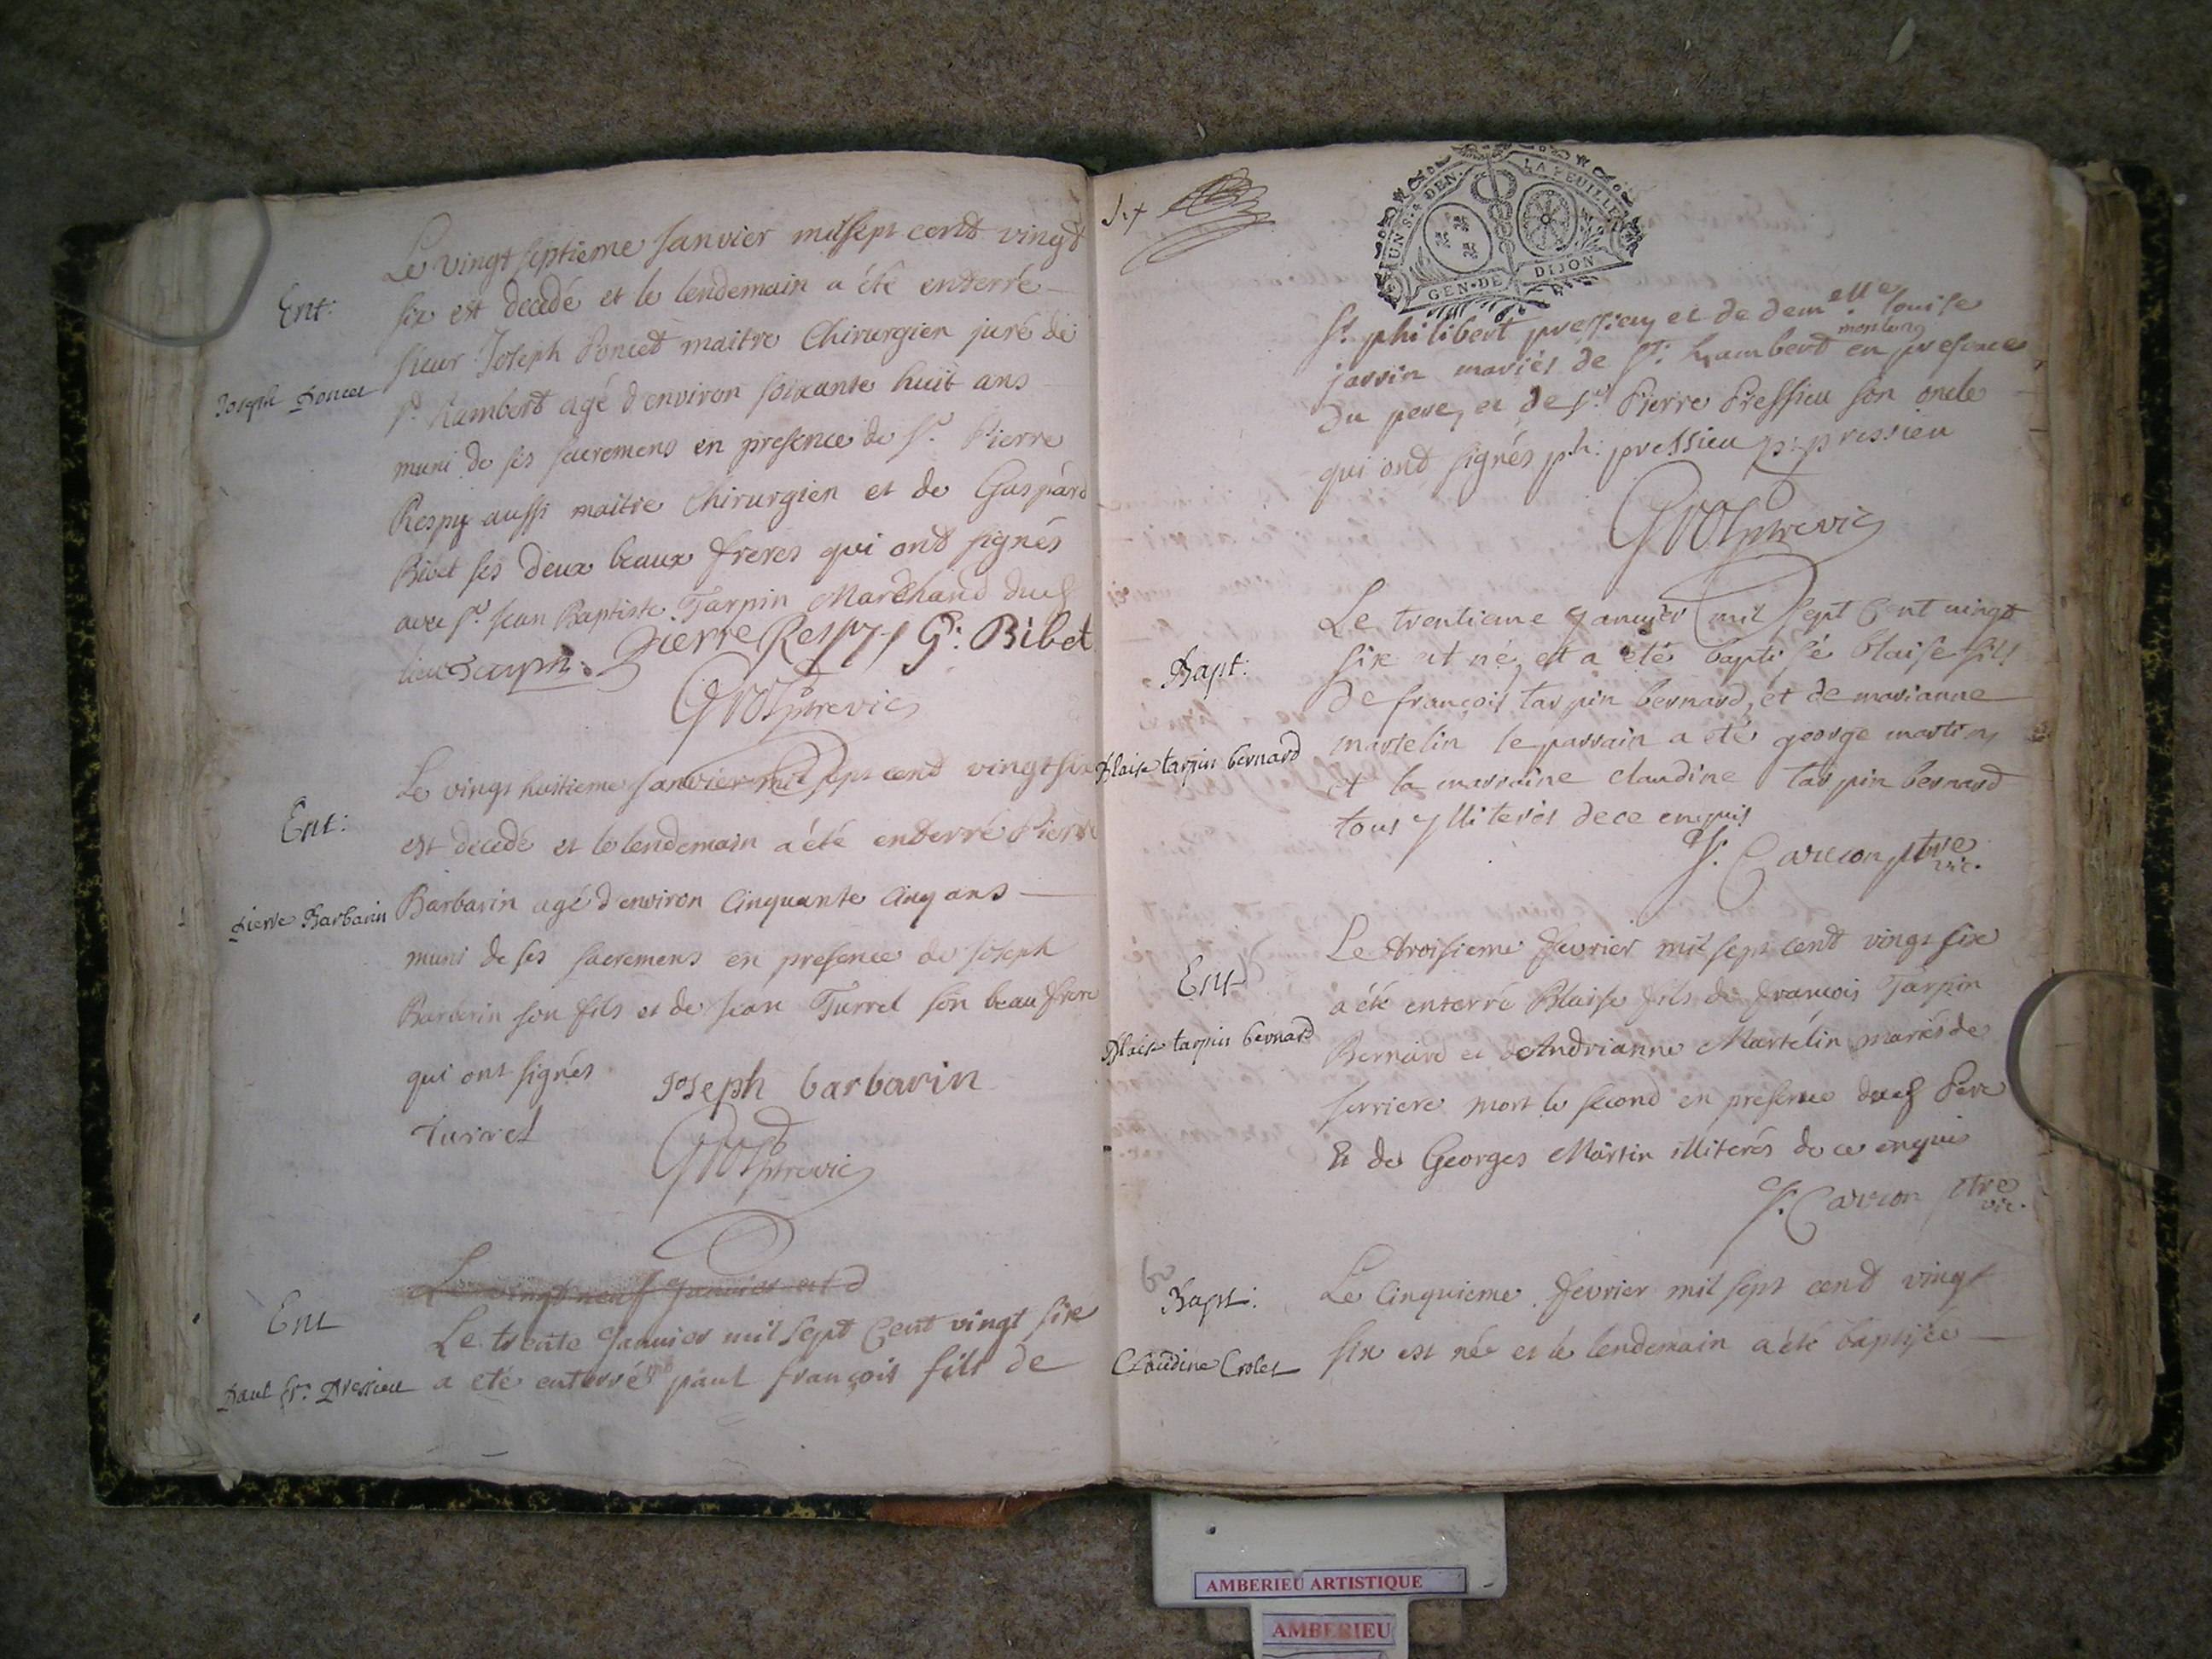 Le vingt septieme Janvier mil sept cent vingt
Ent:
six est decedé et le lendemain a été enterré
sieur Joseph Poncet maitre Chirurgien juré de
Joseph Poncet
St. Rambert agé d'environ soixante huit ans
muni de ses sacremens en presence de Sr. Pierre
Respy aussi maitre Chirurgien et de Gaspard
Bibet ses deux beaux freres qui ont signés
avec Sr. Jean Baptiste Tarpin Marchand dud
lieu Tarpin. Pierre Respy G: Bibet
Gros ptre vic
Le vingt huitieme Janvier mil sept cent vingt six
Ent:
est decedé et le lendemain a été enterré Pierre
Pierre Barbarin
Barbarin agé d'environ Cinquante Cinq ans
muni de ses sacremens en presence de Joseph
Barberin son fils et de Jean Turrel son beau frere
qui ont signés Joseph barbarin
turrel
Gros ptre vic
Le vingt neuf Janvier
Ent
Le trente Janvier mil sept Cent vingt six
Paul fr. Pressieu
a eté enterré paul françois fils de
UN S. 4 DEN. LA FEUILLE
GEN. DE DIJON
Sr. philibert pressieu et de demelle. Louise
montong
jarrin mariés de St. Rambert en presence
du pere, et de Sr. Pierre Pressieu son oncle
qui ont signés ph: pressieu p: pressieu
Gros ptre vic
Le trentieme Janvier mil sept Cent vingt
Bapt:
six est né, et a eté baptisé blaise fils
de françois tarpin bernard, et de marianne
Blaise tarpin bernard
martelin le parrain a eté george martin,
et la marraine claudine tarpin bernard
tous ylliterés de ce enquis
J. Carron ptre
vic.
Le troisieme fevrier mil sept cent vingt six
Ent
a été enterré Blaise fils de françois Tarpin
Blaise tarpin bernard
Bernard et d'Andrianne Martelin mariés de
serriere mort le second en presence dud Pere
Et de Georges Martin illiterés de ce enquis
J. Carron ptre
vic.
Bapt:
Le Cinquieme fevrier mil sept cent vingt
Claudine Crolet
six est née et le lendemain a été baptisée
AMBERIEU ARTISTIQUE
AMBERIEU